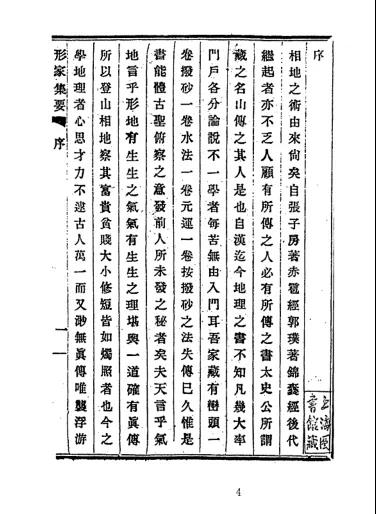 序
相地之術由來尙矣自張子房著赤霆經郭璞著錦囊經後代
繼起者亦不乏人顧有所傳之人必有所傳之書太史公所謂
藏之名山傳之其人是也自漢迄今地理之書不知凡幾大率
門戶各分論說不一學者每苦無由入門耳吾家藏有巒頭一
卷撥砂一卷水法一卷元運一卷按撥砂之法失傳已久惟是
書能體古聖俯察之意發前人所未發之秘者矣夫天言乎氣
地言乎形地有生生之氣氣有生生之理堪輿一道確有眞傳
所以登山相地察其富貴貧賤大小修短皆如燭照者也今之
學地理者心思才力不逮古人萬一而又渺無眞傳唯襲浮游
形家集要 序 一
上海圖書館藏
4